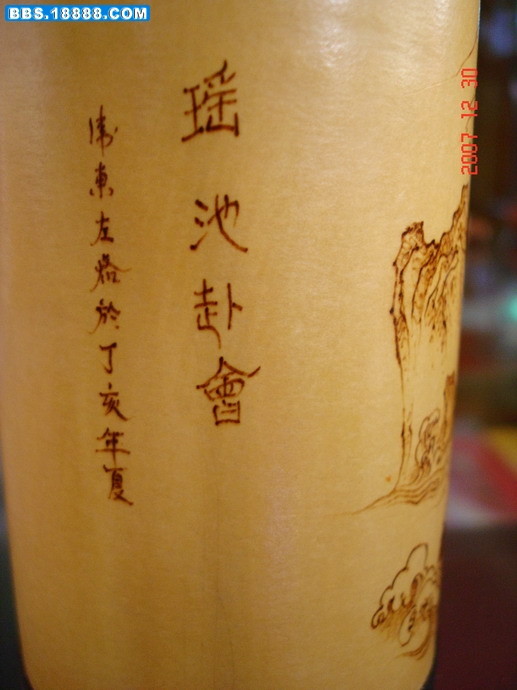 BBS.18888.COM
2007 12 30
瑶池赴會
東左烙於丁亥年夏